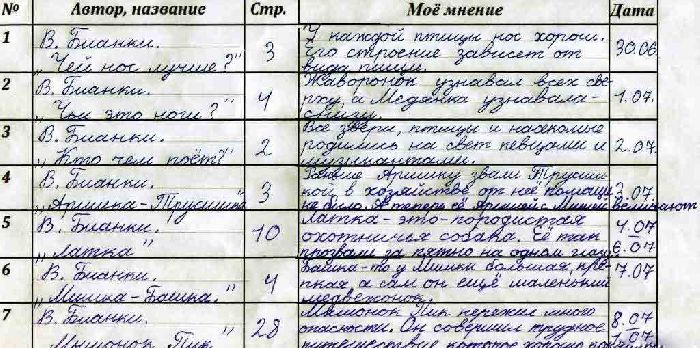 № Автор, название Стр. Моё мнение Дата
1 В. Бианки. 3 У каждой птицы нос хорош. 30.06
„Чей нос лучше?" Его строение зависит от
вида пищи.
2 В. Бианки. 4 Жаворонок узнавал всех све- 1.07.
„Чьи это ноги?" рху, а Медянка узнавала-
снизу.
3 В. Бианки. 2 Все звери, птицы и насекомые 2.07.
„Кто чем поёт?" родились на свет певцами и
музыкантами.
4 В. Бианки. 3 Раньше Аришку звали Трусиш- 3.07
„Аришка-Трусишка" кой, в хозяйстве от неё помощи
не было. А теперь её Аришей с Мишей величают
5 В. Бианки. 10 Латка-это-породистая 4.07
„Латка" охотничья собака. Её так 6.07
прозвали за пятно на одном глазу.
6 В. Бианки. 4 Башка-то у Мишки большая, кре- 7.07
„Мишка-Башка." пкая, а сам он ещё маленький
медвежонок.
7 В. Бианки. 28 Мышонок Пик пережил много 8.07
„Мышонок Пик" опасности. Он совершил трудное .07
путешествие которое хорошо